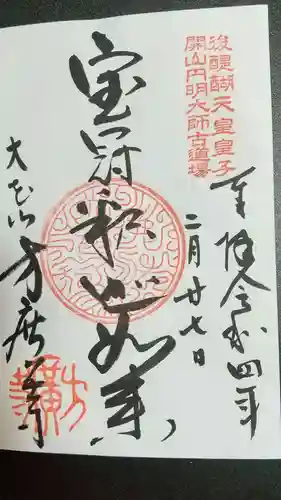 後醍醐天皇皇子
開山円明大師古道場
奉拝令和四年
二月廿七日
宝冠釈迦如来
大龙山方広寺
方広寺